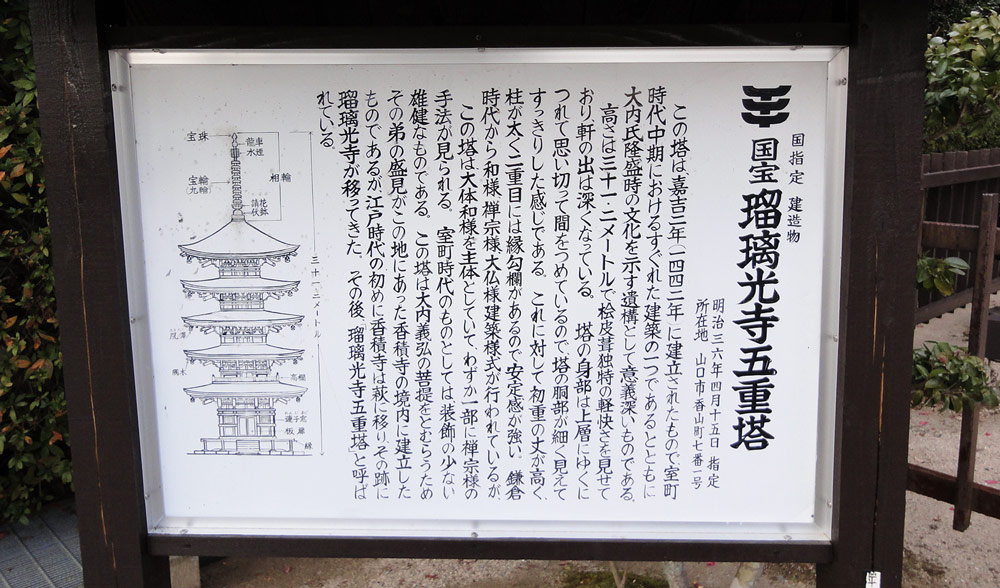 国指定 建造物
国宝 瑠璃光寺五重塔
明治三六年四月十五日 指定
所在地 山口市香山町七番一号
この塔は、嘉吉二年(一四四二年)に建立されたもので室町
時代中期におけるすぐれた建築の一つであるとともに
大内氏隆盛時の文化を示す遺構として意義深いものである。
高さは三十一・二メートルで桧皮葺独特の軽快さを見せて
おり、軒の出は深くなっている。塔の身部は上層にゆくに
つれて思い切って間をつめているので塔の胴部が細く見えて
すっきりした感じである。これに対して初重の丈が高く
柱が太く二重目には縁勾欄があるので安定感が強い。鎌倉
時代から和様、禅宗様、大仏様建築様式が行われているが、
この塔は大体和様を主体としていて、わずか一部に禅宗様の
手法が見られる。室町時代のものとしては装飾の少ない
雄健なものである。この塔は大内義弘の菩提をとむらうため
その弟の盛見がこの地にあった香積寺の境内に建立した
ものであるが江戸時代の初めに香積寺は萩に移り、その跡に
瑠璃光寺が移ってきた。その後、「瑠璃光寺五重塔」と呼ば
れている。
宝珠
竜車
水煙
相輪
宝輪
九輪
請花
伏鉢
三十一・二メートル
高欄
連子窓
板扉
縁